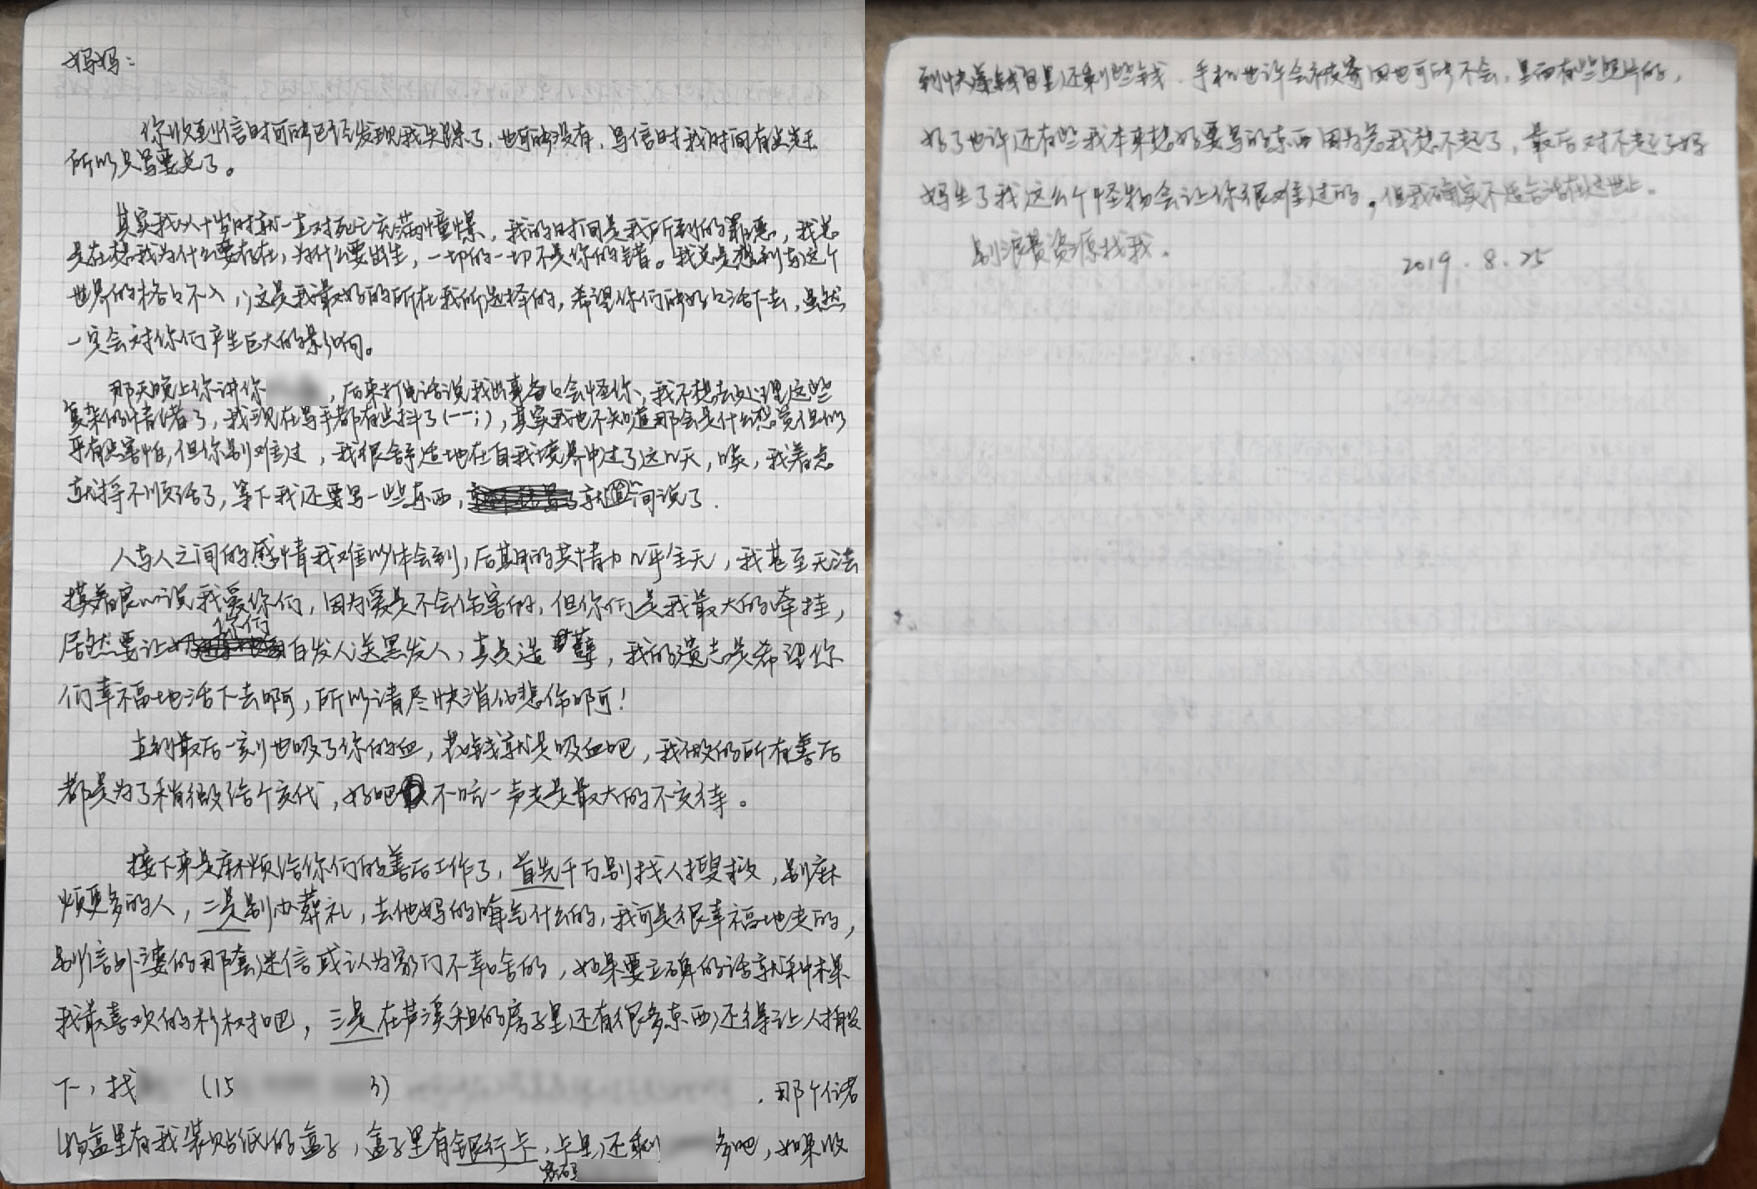 妈妈：
你收到信时可能已经发现我失踪了，也可能没有，写信时我时间有点赶
所以只写要点了。
其实我从十岁时就一直对死亡充满憧憬，我的时间是我所剩的罪恶，我总
是在想我为什么要存在，为什么要出生，一切的一切不是你的错。我总是想到与这个
世界的格格不入，这是我最好的所在我所选择的，希望你们能好好活下去，虽然
一定会对你们产生巨大的影响。
那天晚上你讲你 ，后来打电话说我出事爸爸会怪你，我不想去处理这些
复杂的情绪了，我现在写手都有些抖了(一一;)，其实我也不知道那会是什么感觉但似
乎有些害怕，但你别难过，我很舒适地在自我境界中过了这几天，唉，我着急
就捋不顺话了，等下我还要写一些东西， 就简说了.
人与人之间的感情我难以体会到，后期的共情力几乎全无，我甚至无法
摸着良心说我爱你们，因为爱是不会伤害的，但你们是我最大的牵挂，
居然要让你们白发人送黑发人，真是造孽，我的遗志是希望你
们幸福地活下去啊，所以请尽快消化悲伤啊！
直到最后一刻也吸了你的血，花钱就是吸血吧，我做的所有善后
都是为了稍微给个交代，好吧 不吭一声走是最大的不交待。
接下来是麻烦给你们的善后工作了，首先千万别找人搜救，别麻
烦更多的人，二是别办葬礼，去他妈的晦气什么的，我可是很幸福地走的，
别信外婆的那套迷信或认为家门不幸啥的，如果要立碑的话就种棵
我最喜欢的杉树吧，三是在芦溪租的房子里还有很多东西，还得让人搬
下，找 (15 3) . 那个住者
的盒里有我装贴纸的盒子，盒子里有银行卡，卡里还剩 多吧，如果收
密码
到快递钱包里还剩些钱. 手机也许会被寄回也可能不会，里面有些照片的，
好了也许还有些我本来想好要写的东西因为急我想不起了，最后对不起了妈
妈生了我这么个怪物会让你很难过的。但我确实不适合活在这世上.
别浪费资源找我.
2019.8.25